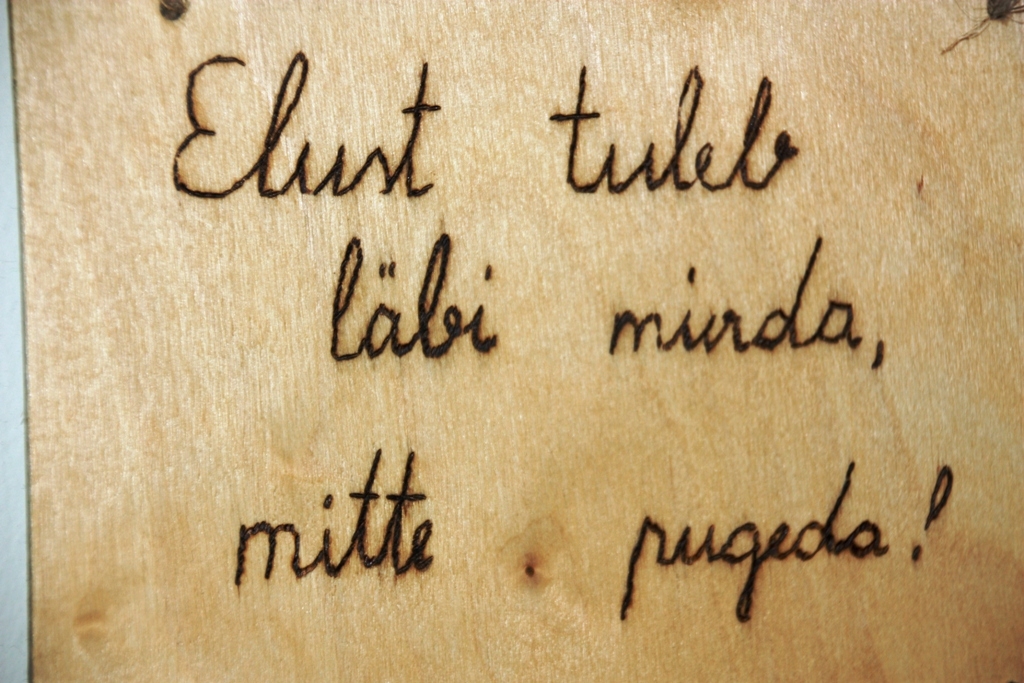 Elust tuleb
läbi murda,
mitte pugeda!